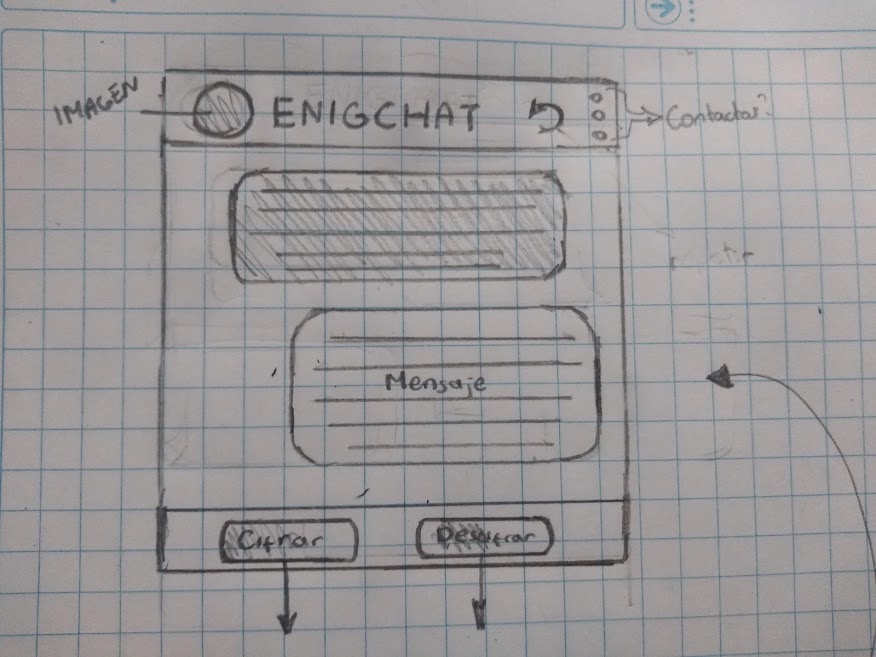 IMAGEN
ENIGCHAT
Contactos?
Mensaje
Cifrar
Descifrar